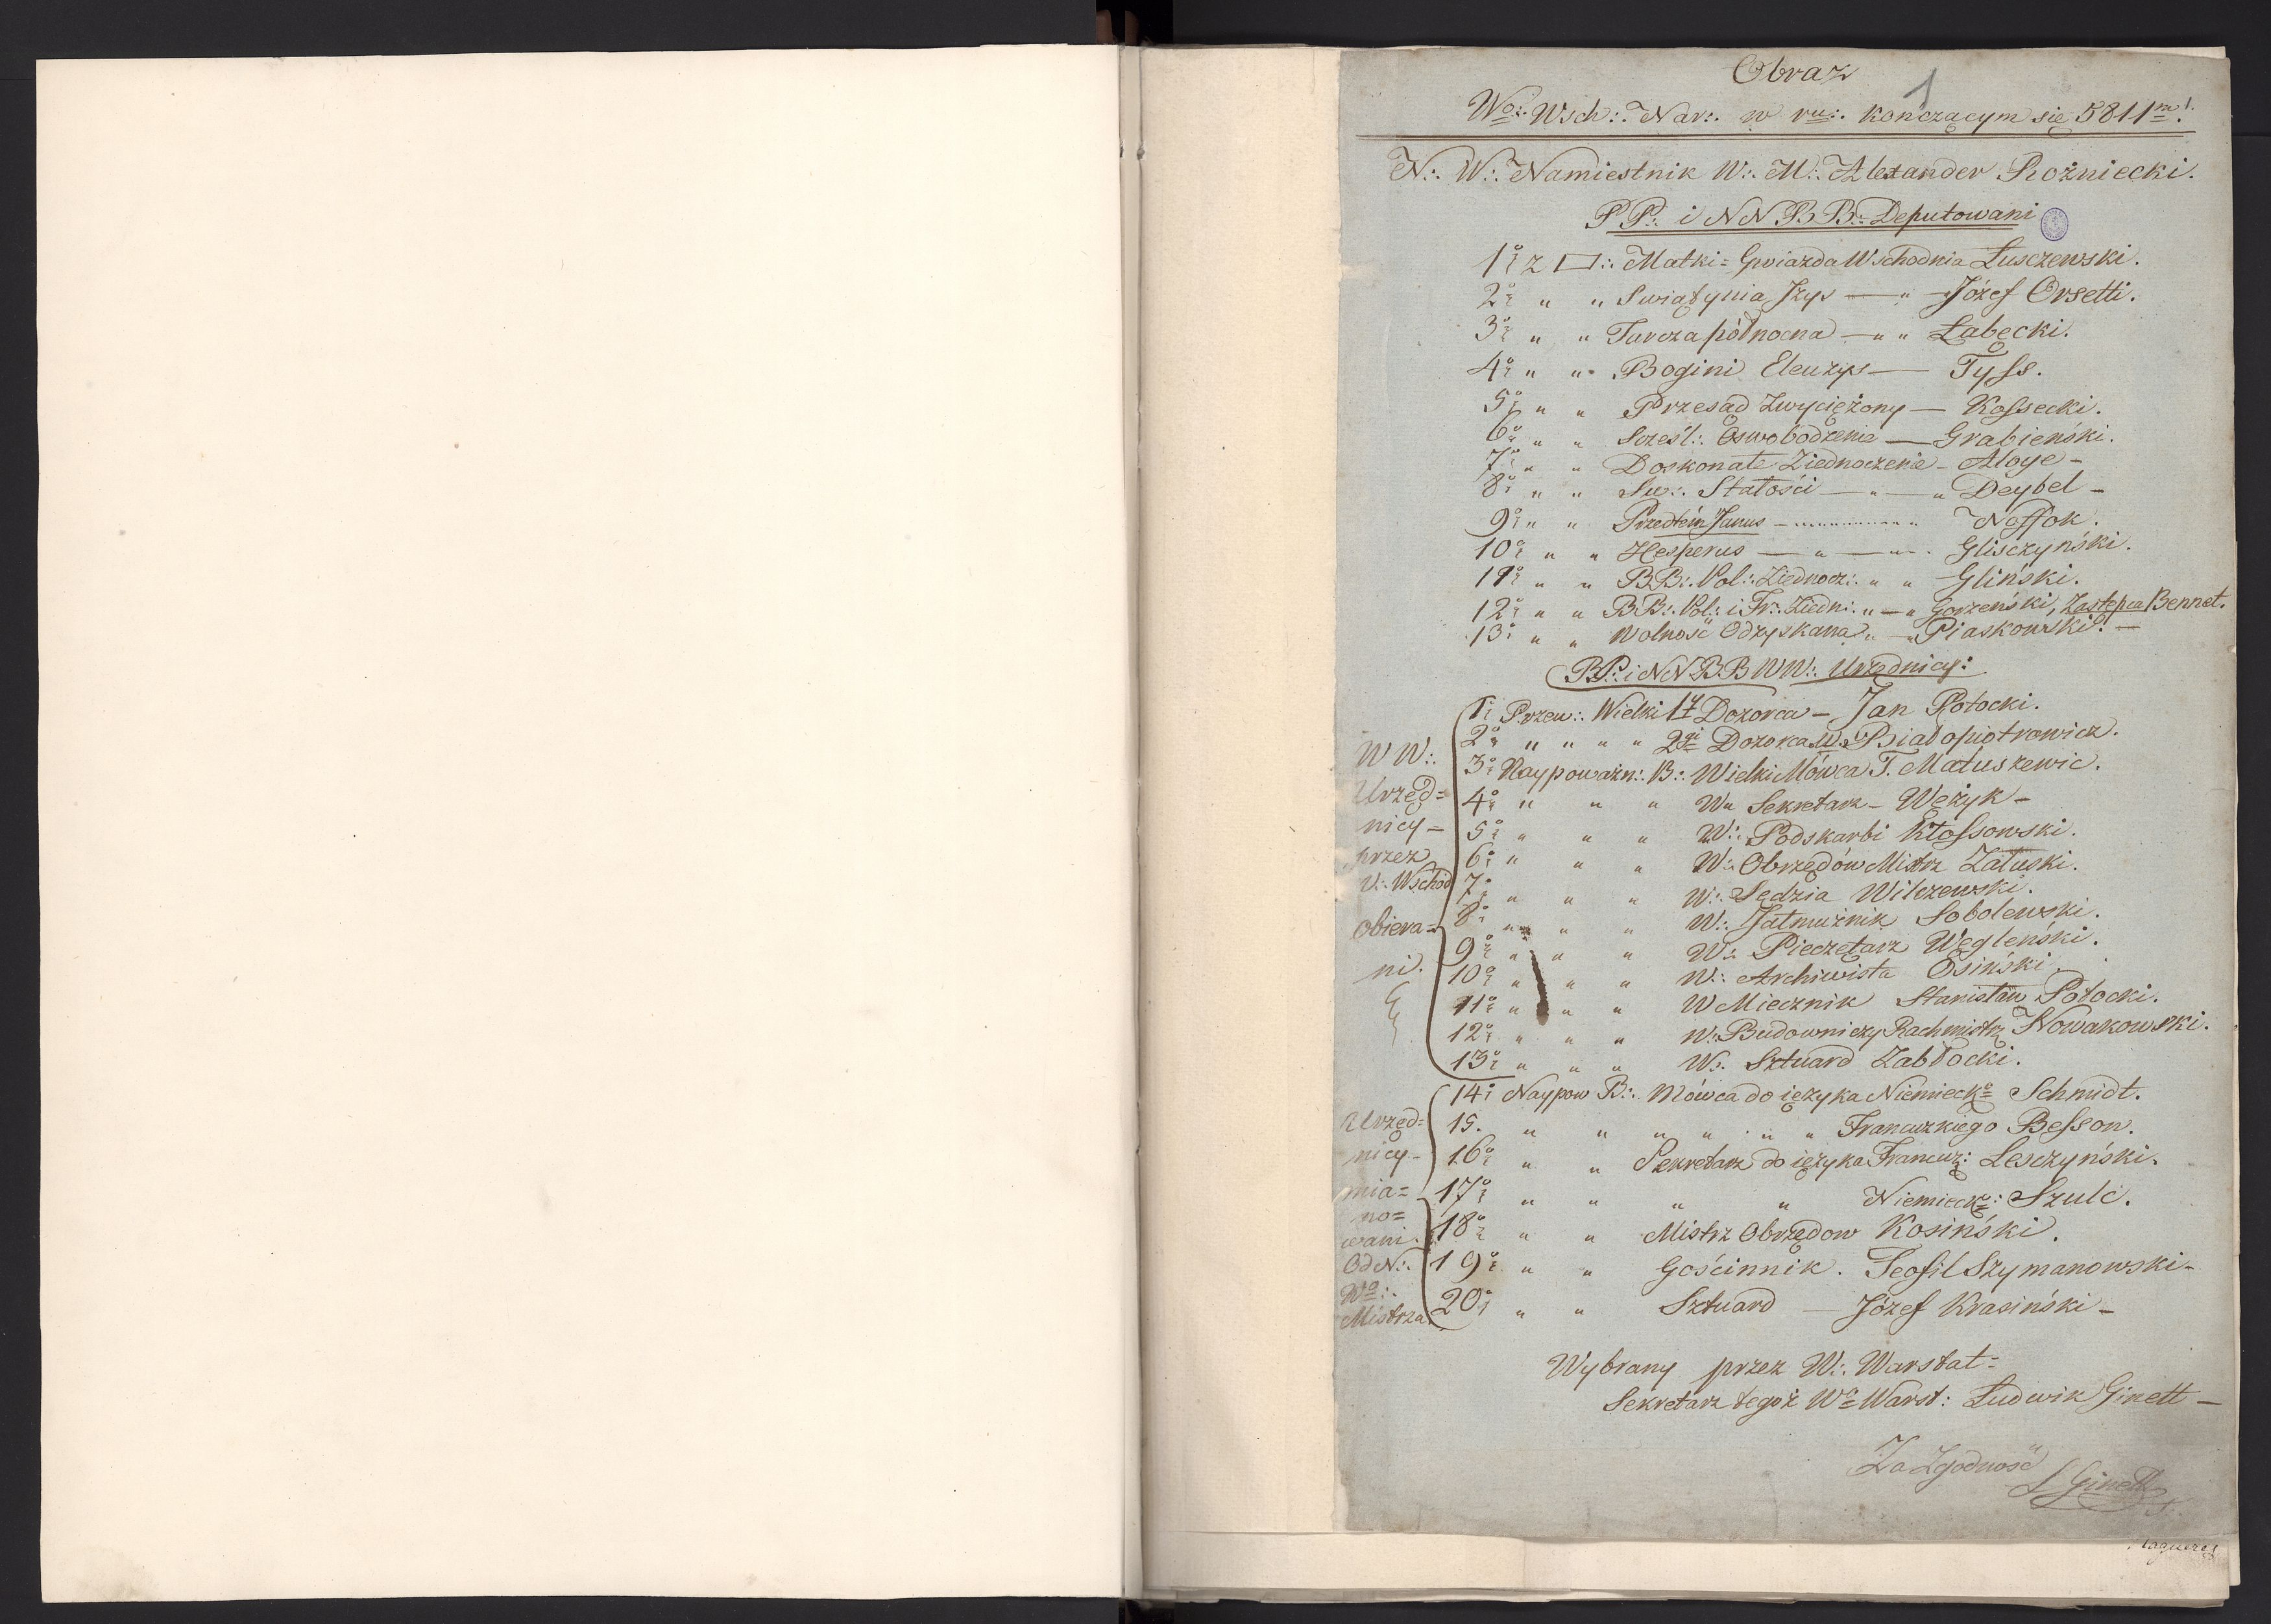 Obraz
1
Wo:. Wsch:. Nar:. w ru:. kończącym się 5811m!.
N:. W:. Namiestnik W:. M:. Alexander Rożniecki.
PP:. i NNBB:. Deputowani
1o z ▭:. Matki = Gwiazda Wschodnia Łusczewski.
2o " " Swiątynia Jzys — " — Józef Orsetti.
3o " " Tarcza północna — " " Łabęcki.
4o " " Bogini Eleuzys — Tyss.
5o " " Przesąd Zwyciężony — Kossecki.
6o " " Scześl:. Oswobodzenie — Grabieński.
7o " " Doskonałe Ziednoczenie - Aloye -
8o " " Sw:. Stałości — " — " Deybel -
9o " " Przedtém Janus - Noffok.
10o " " Hesperus — " — " Glisczyński.
11o " " BB:. Pol:. Ziednocz:. " " Gliński.
12o " " BB:. Pol:. i Fr:. Ziedn:. " — " Gorzeński, Zastępca Bennet.
13o " " Wolność Odzyskana " — " Piaskowski. —
PP:. i NNBBWW:. Urzędnicy:
1o Przew:. Wielki 1y Dozorca — Jan Potocki.
2o " " " " 2gi Dozorca W: Biadopiotrowicz.
3o Naypoważn:. B:. Wielki Mówca T. Matuszewic.
4o " " " W" Sekretarz - Wężyk -
5o " " " W:. Podskarbi Kłossowski.
6o " " " W:. Obrzędów Mistrz Załuski.
7o " " " W:. Sędzia Wilczewski.
8o " " " W:. Jałmużnik Sobolewski.
9o " " " W:. Pieczętarz Węgleński.
10o " " " W:. Archiwista Osiński
11o " " " W Miecznik Stanisław Potocki.
12o " " " W:. Budowniczy Rachmistrz Nowakowski.
13o " " " W:. Sztuard Zabłocki.
WW:.
Urzęd=
nicy -
przez
W:. Wschód
obiera=
ni.
14o Naypow B:. Mówca do ięzyka Niemieck:o Schmidt.
15. " " " " " " Francuzkiego Besson.
16o " " Sekretarz do ięzyka Francuz: Lesczyński.
17o " " " " Niemieck:o Szulc.
18o " " Mistrz Obrzędow Kosiński.
19o " " Gościnnik. Teofil Szymanowski -
20o " " Sztuard — Józef Krasiński -
Urzęd=
nicy -
mia=
no=
wani.
Od N:.
Wo:.
Mistrza
Wybrany przez W:. Warstat=
Sekretarz tegoż Wo Warst: Ludwik Ginett —
Za Zgodność
L Ginett